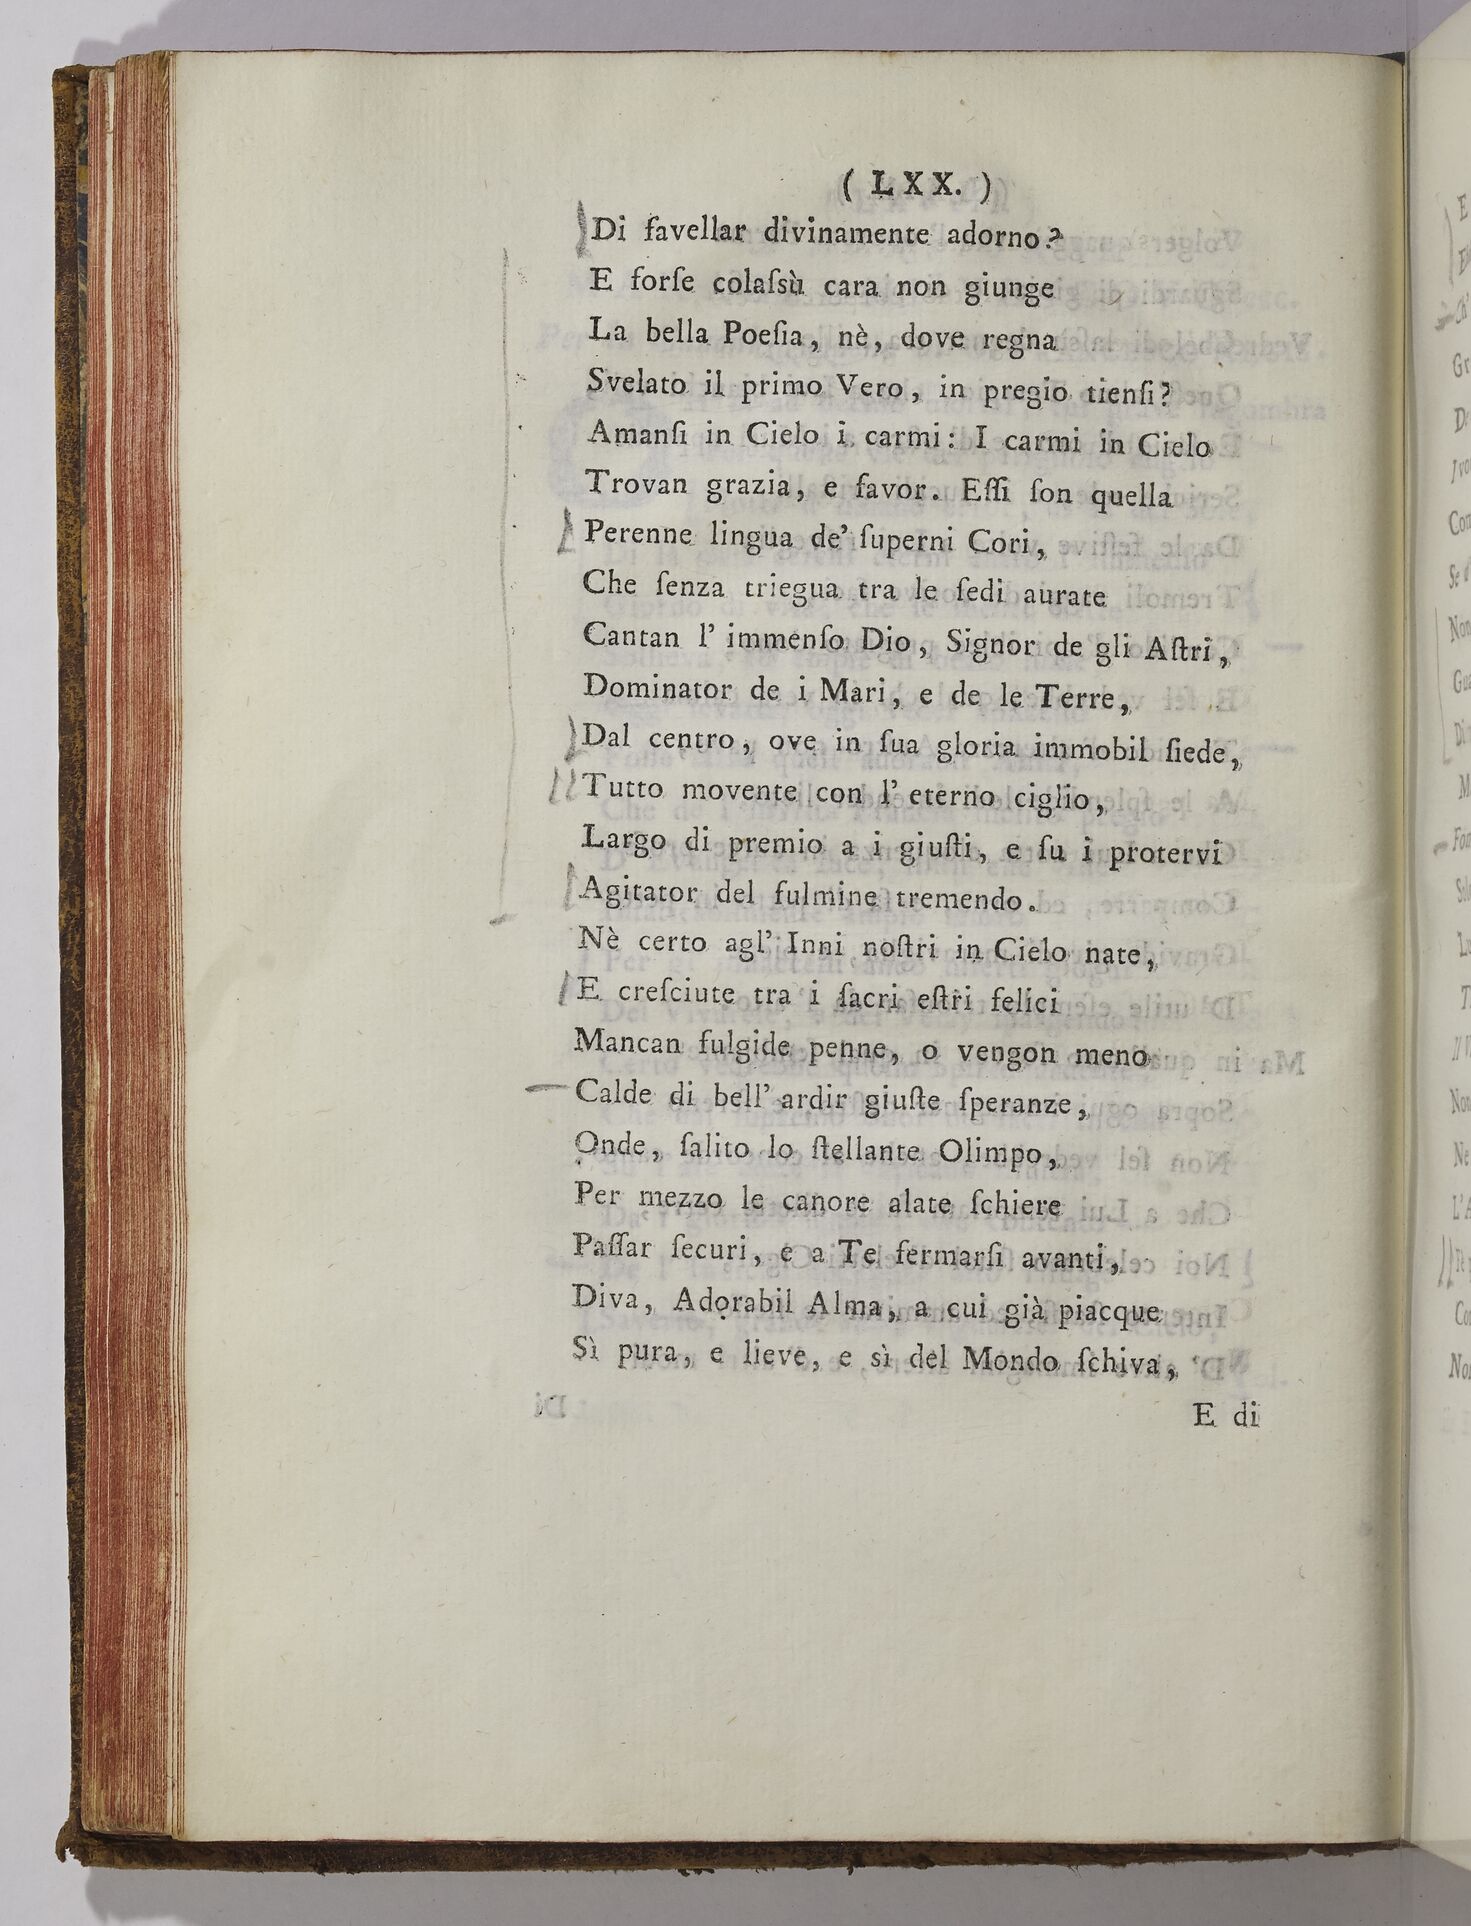 ( LXX. )
Di favellar divinamente adorno?
E forſe colaſsù cara non giunge
La bella Poeſia, nè, dove regna
Svelato il primo Vero, in pregio tienſi?
Amanſi in Cielo i carmi: I carmi in Cielo
Trovan grazia, e favor. Eſſi ſon quella
Perenne lingua de' ſuperni Cori,
Che ſenza triegua tra le ſedi aurate
Cantan l' immenſo Dio, Signor de gli Aſtri,
Dominator de i Mari, e de le Terre,
Dal centro, ove in ſua gloria immobil ſiede,
Tutto movente con l' eterno ciglio,
Largo di premio a i giuſti, e ſu i protervi
Agitator del fulmine tremendo.
Nè certo agl' Inni noſtri in Cielo nate,
E creſciute tra i ſacri eſtri felici
Mancan fulgide penne, o vengon meno
Calde di bell' ardir giuſte ſperanze,
Onde, ſalito lo ſtellante Olimpo,
Per mezzo le canore alate ſchiere
Paſſar ſecuri, e a Te fermarſi avanti,
Diva, Adorabil Alma, a cui già piacque
Sì pura, e lieve, e sì del Mondo ſchiva,
E di